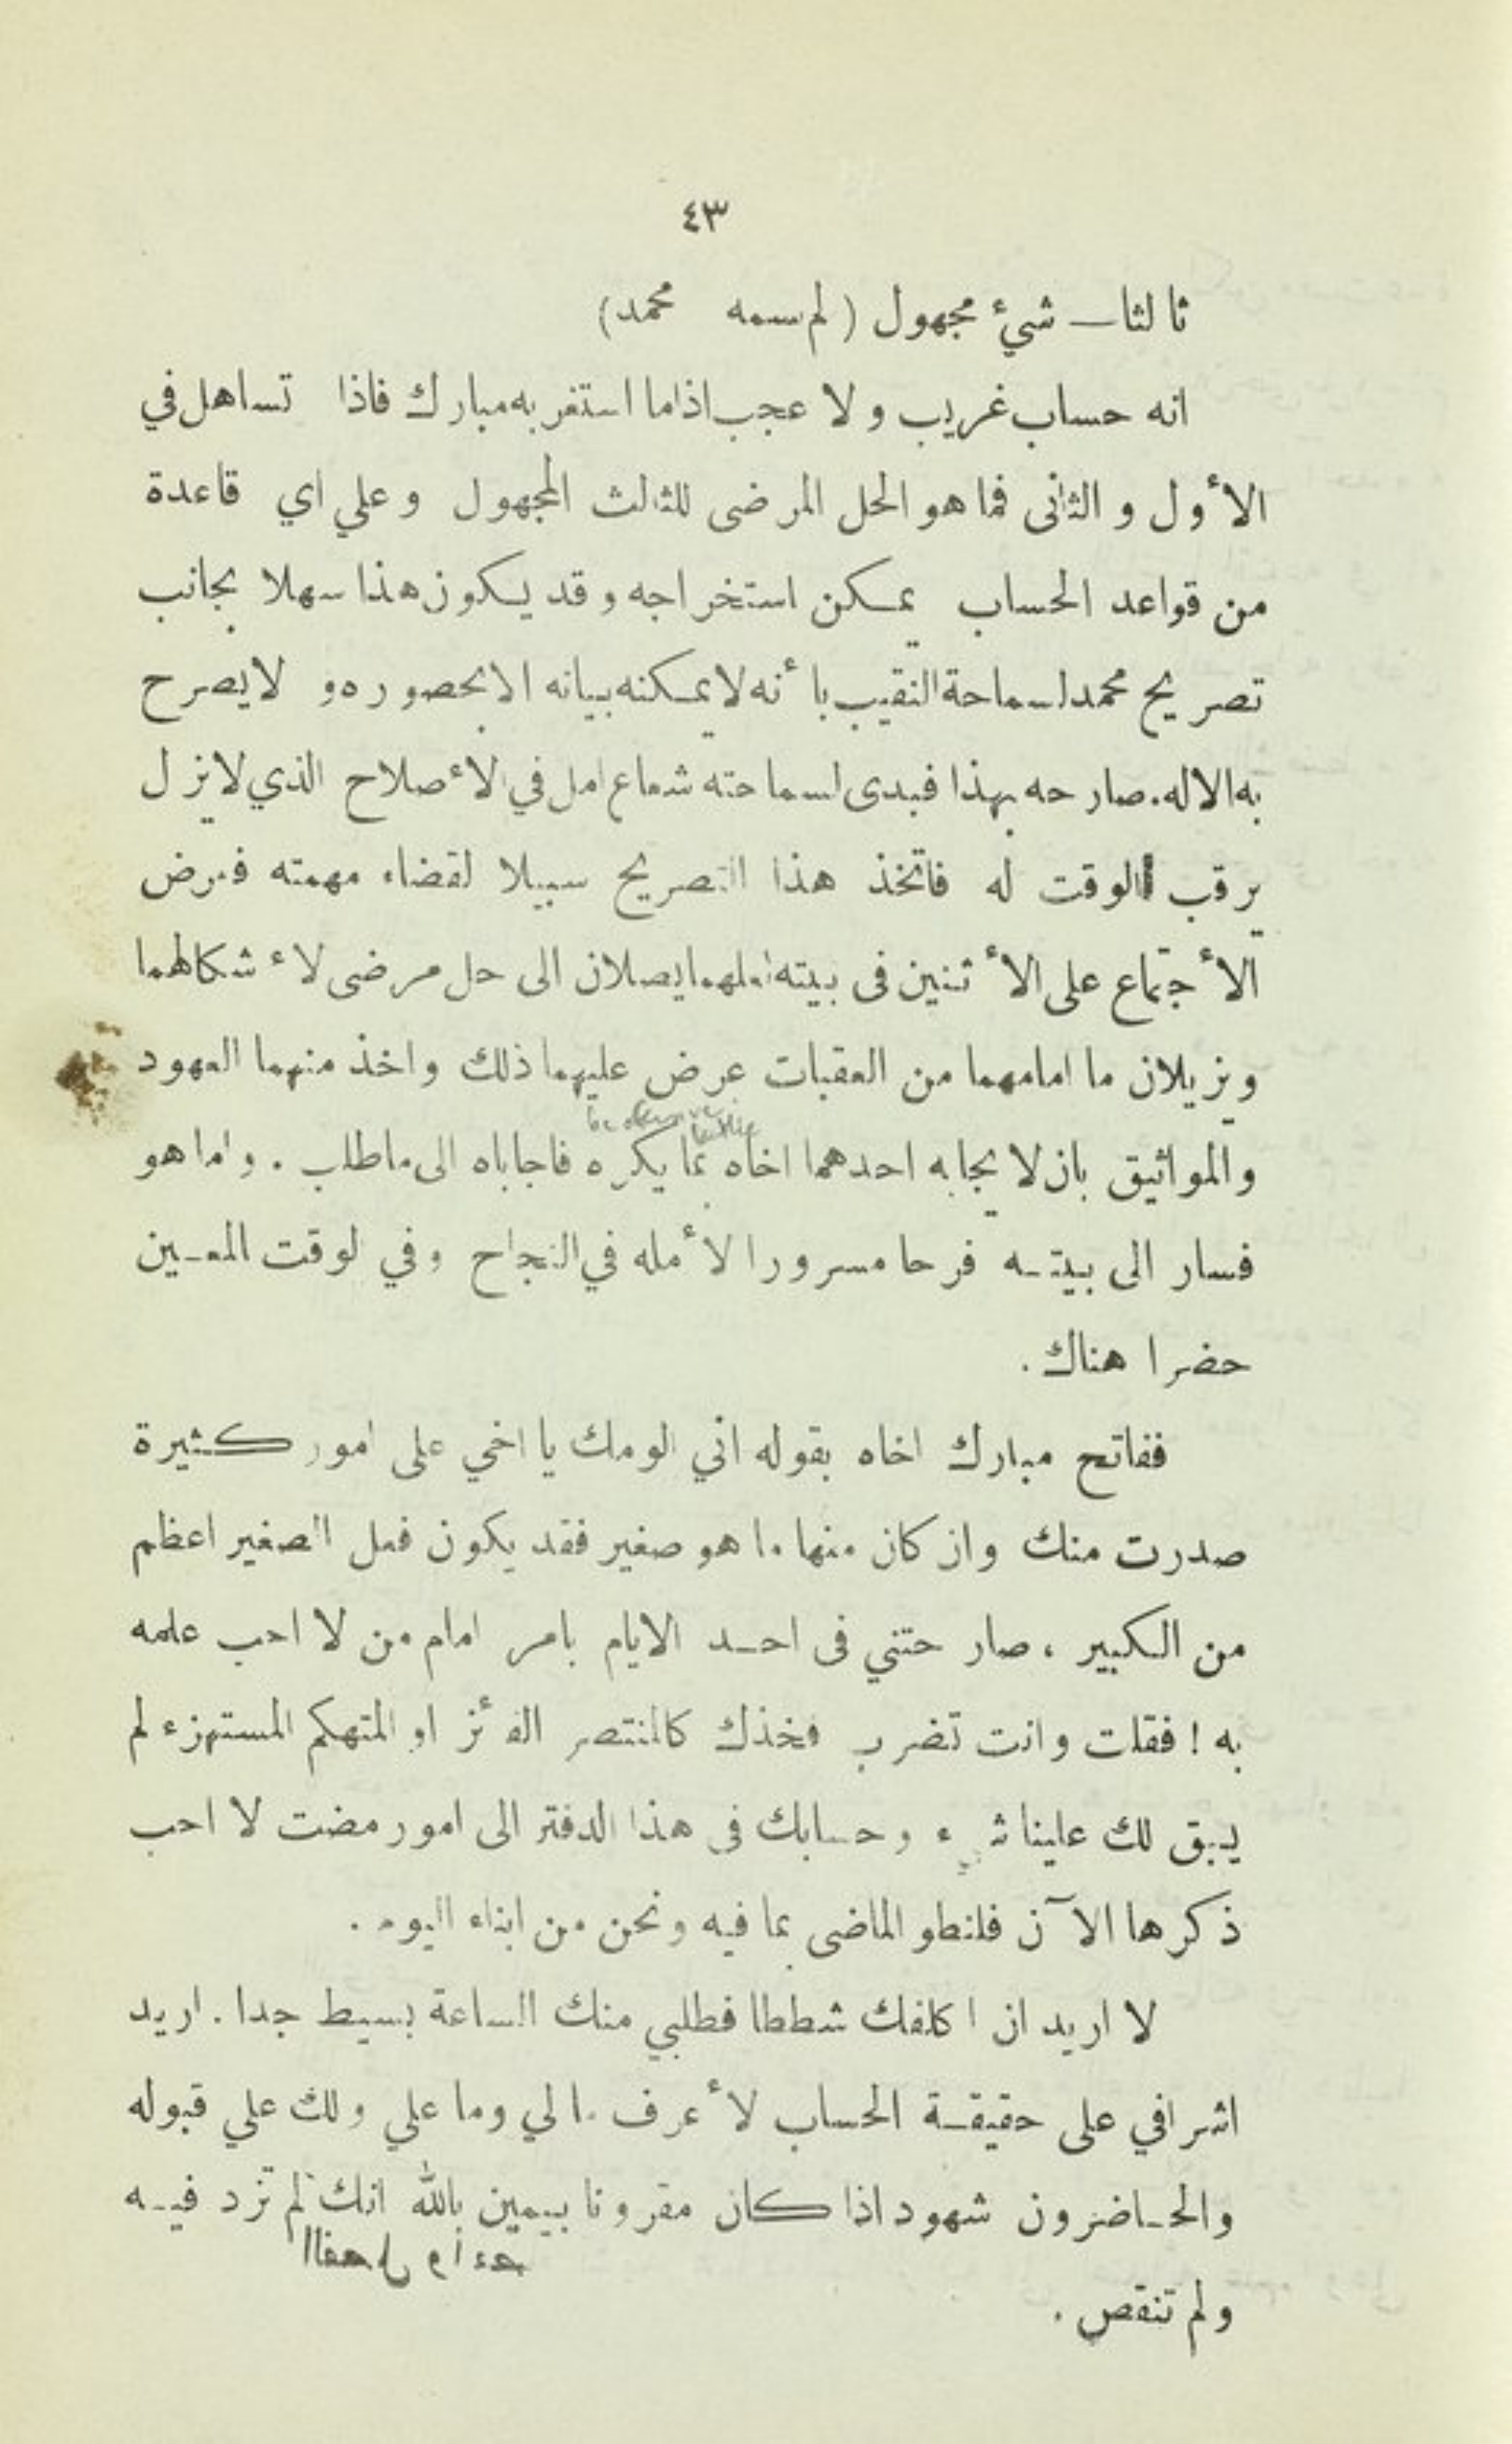 ٤٣
ثالثا — شيء مجهول (لم سمه محمد)
انه حساب غريب ولا عجب اذا ما استغر به مبارك فاذا تساهل في
الأول والثانى فما هو الحل المرضى للثالث المجهول وعلي اي قاعدة
من قواعد الحساب يمكن استخراجه وقد يكون هذا سهلا بجانب
تصريح محمد لسماحة النقيب بأنه لا يمكنه بيانه الا بحضوره و لا يصرح
به الا له . صارحه بهذا فبدى لسماحته شعاع امل في الأصلاح الذي لا يزل
يرقب الوقت له فاتخذ هذا التصريح سبيلا لقضاء مهمته فعرض
الأجتماع على الأثنين فى بيته لعلهما يصلان الى حل مرضى لأشكالهما
ويزيلان ما امامهما من العقبات عرض عليهما ذلك واخذ منهما العهود
والمواثيق بان لا يجابه احدهما اخاه بما يكره فاجاباه الى ما طلب . واما هو
فسار الى بيته فرحا مسرورا لأمله في النجاح وفي لوقت المعين
حضرا هناك .
ففاتح مبارك اخاه بقوله اني الومك يا اخي على امور كثيرة
صدرت منك وان كان منها ما هو صغير فقد يكون فعل الصغير اعظم
من الكبير ، صارحتني فى احد الايام بامر امام من لا احب علمه
به ! فقلت وانت تضرب فخذك كالمنتصر الفائز او المتهكم المستهزء لم
يبق لك علينا شيء وحسابك فى هذا الدفتر الى امور مضت لا احب
ذكرها الآن فلنطو الماضى بما فيه ونحن من ابناء اليوم .
لا اريد ان اكلفك شططا فطلبي منك الساعة بسيط جدا . اريد
اشرافي على حقيقة الحساب لأعرف ما لي وما علي ولك علي قبوله
والحاضرون شهود اذا كان مقرونا بيمين بالله انك لم تزد فيه
ولم تنقص .